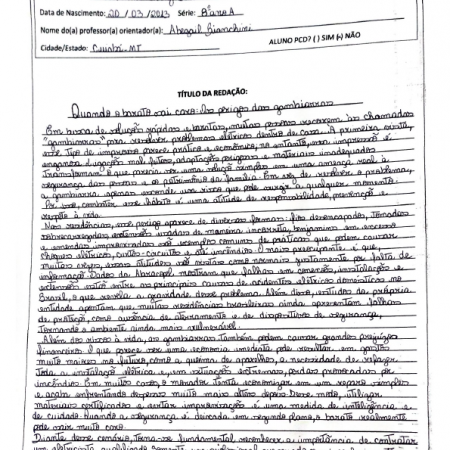 Data de Nascimento: 20 / 03 / 2013 Série: 8º ano A
Nome do(a) professor(a) orientador(a): Abegail Bianchini
Cidade/Estado: Cuiabá, MT ALUNO PCD? ( ) SIM (x) NÃO
TÍTULO DA REDAÇÃO:
Quando o barato sai caro: Os perigos das gambiarras
Em busca de soluções rápidas e baratas, muitas pessoas recorrem às chamadas
"gambiarras" para resolver problemas elétricos dentro de casa. À primeira vista,
esse tipo de improviso parece prático e econômico, no entanto, essa impressão é
enganosa. Ligações mal feitas, adaptações perigosas e materiais inadequados
transformam o que parecia ser uma solução simples em uma ameaça real à
segurança das pessoas e ao patrimônio da família. Em vez de resolver o problema,
a gambiarra apenas esconde um risco que pode surgir a qualquer momento.
Por isso, combater esse hábito é uma atitude de responsabilidade, prevenção e
respeito à vida.
Nas residências, esse perigo aparece de diversas formas: fios desencapados, tomadas
sobrecarregadas, extensões usadas de maneira incorreta, benjamins em excesso
e emendas improvisadas são exemplos comuns de práticas que podem causar
choques elétricos, curtos-circuitos e até incêndios. O mais preocupante é que
muitas vezes, essas atitudes são vistas como normais justamente por falta de
informação. Dados da Abracopel mostram que falhas em conexões, instalações e
extensões estão entre as principais causas de acidentes elétricos domésticos no
Brasil, o que revela a gravidade desse problema. Além disso, estudos da própria
entidade apontam que muitas residências brasileiras ainda apresentam falhas
de proteção, como ausência de aterramento e de dispositivos de segurança,
tornando o ambiente ainda mais vulnerável.
Além dos riscos à vida, as gambiarras também podem causar grandes prejuízos
financeiros. O que parece ser uma economia imediata pode resultar em gastos
muito maiores no futuro, como a queima de aparelhos, a necessidade de refazer
toda a instalação elétrica e, em situações extremas, perdas provocadas por
incêndios. Em muitos casos, o morador tenta economizar em um reparo simples
e acaba enfrentando despesas muito mais altas depois. Desse modo, utilizar
materiais certificados e evitar improvisações é uma medida de inteligência e
de cuidado. Quando a segurança é deixada em segundo plano, o barato realmente
pode sair muito caro.
Diante desse cenário, torna-se fundamental reconhecer a importância de contratar
um eletricista qualificado